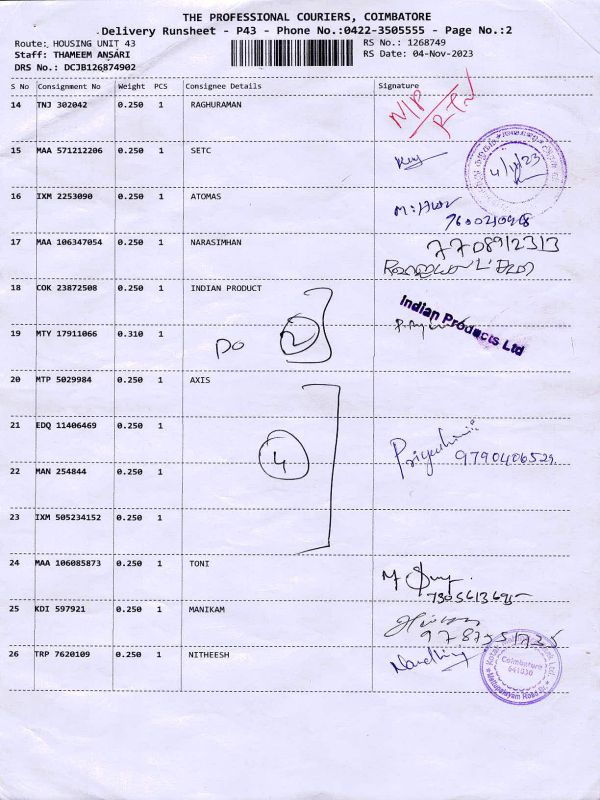 THE PROFESSIONAL COURIERS, COIMBATORE
Delivery Runsheet - P43 - Phone No.:0422-3505555 - Page No.:2
Route: HOUSING UNIT 43
RS No.: 1268749
Staff: THAMEEM ANSARI
RS Date: 04-Nov-2023
DRS No.: DCJB126874902
S No Consignment No Weight PCS Consignee Details Signature
14 TNJ 302042 0.250 1 RAGHURAMAN
15 MAA 571212206 0.250 1 SETC
4/11/23
16 IXM 2253090 0.250 1 ATOMAS
17 MAA 106347054 0.250 1 NARASIMHAN
7708912313
18 COK 23872508 0.250 1 INDIAN PRODUCT
Indian Products Ltd
19 MTY 17911066 0.310 1
DO 2
20 MTP 5029984 0.250 1 AXIS
21 EDQ 11406469 0.250 1
4
9790406529
22 MAN 254844 0.250 1
23 IXM 505234152 0.250 1
24 MAA 106085873 0.250 1 TONI
25 KDI 597921 0.250 1 MANIKAM
26 TRP 7620109 0.250 1 NITHEESH
Coimbatore
641030